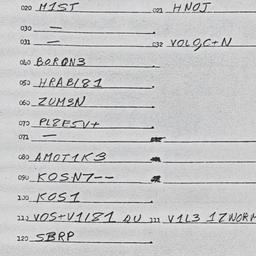 020 M1ST 021 HNOJ
030 —
031 — 032 VOLGC+N
040 BORON3
050 HPAB181
060 ZUM3N
070 PLZE5V+
071 —
080 AMOT1K3
090 KOSN7--
100 KOS1
110 VOS+V1181 DU 111 V1L3 17NORM
120 SBRP